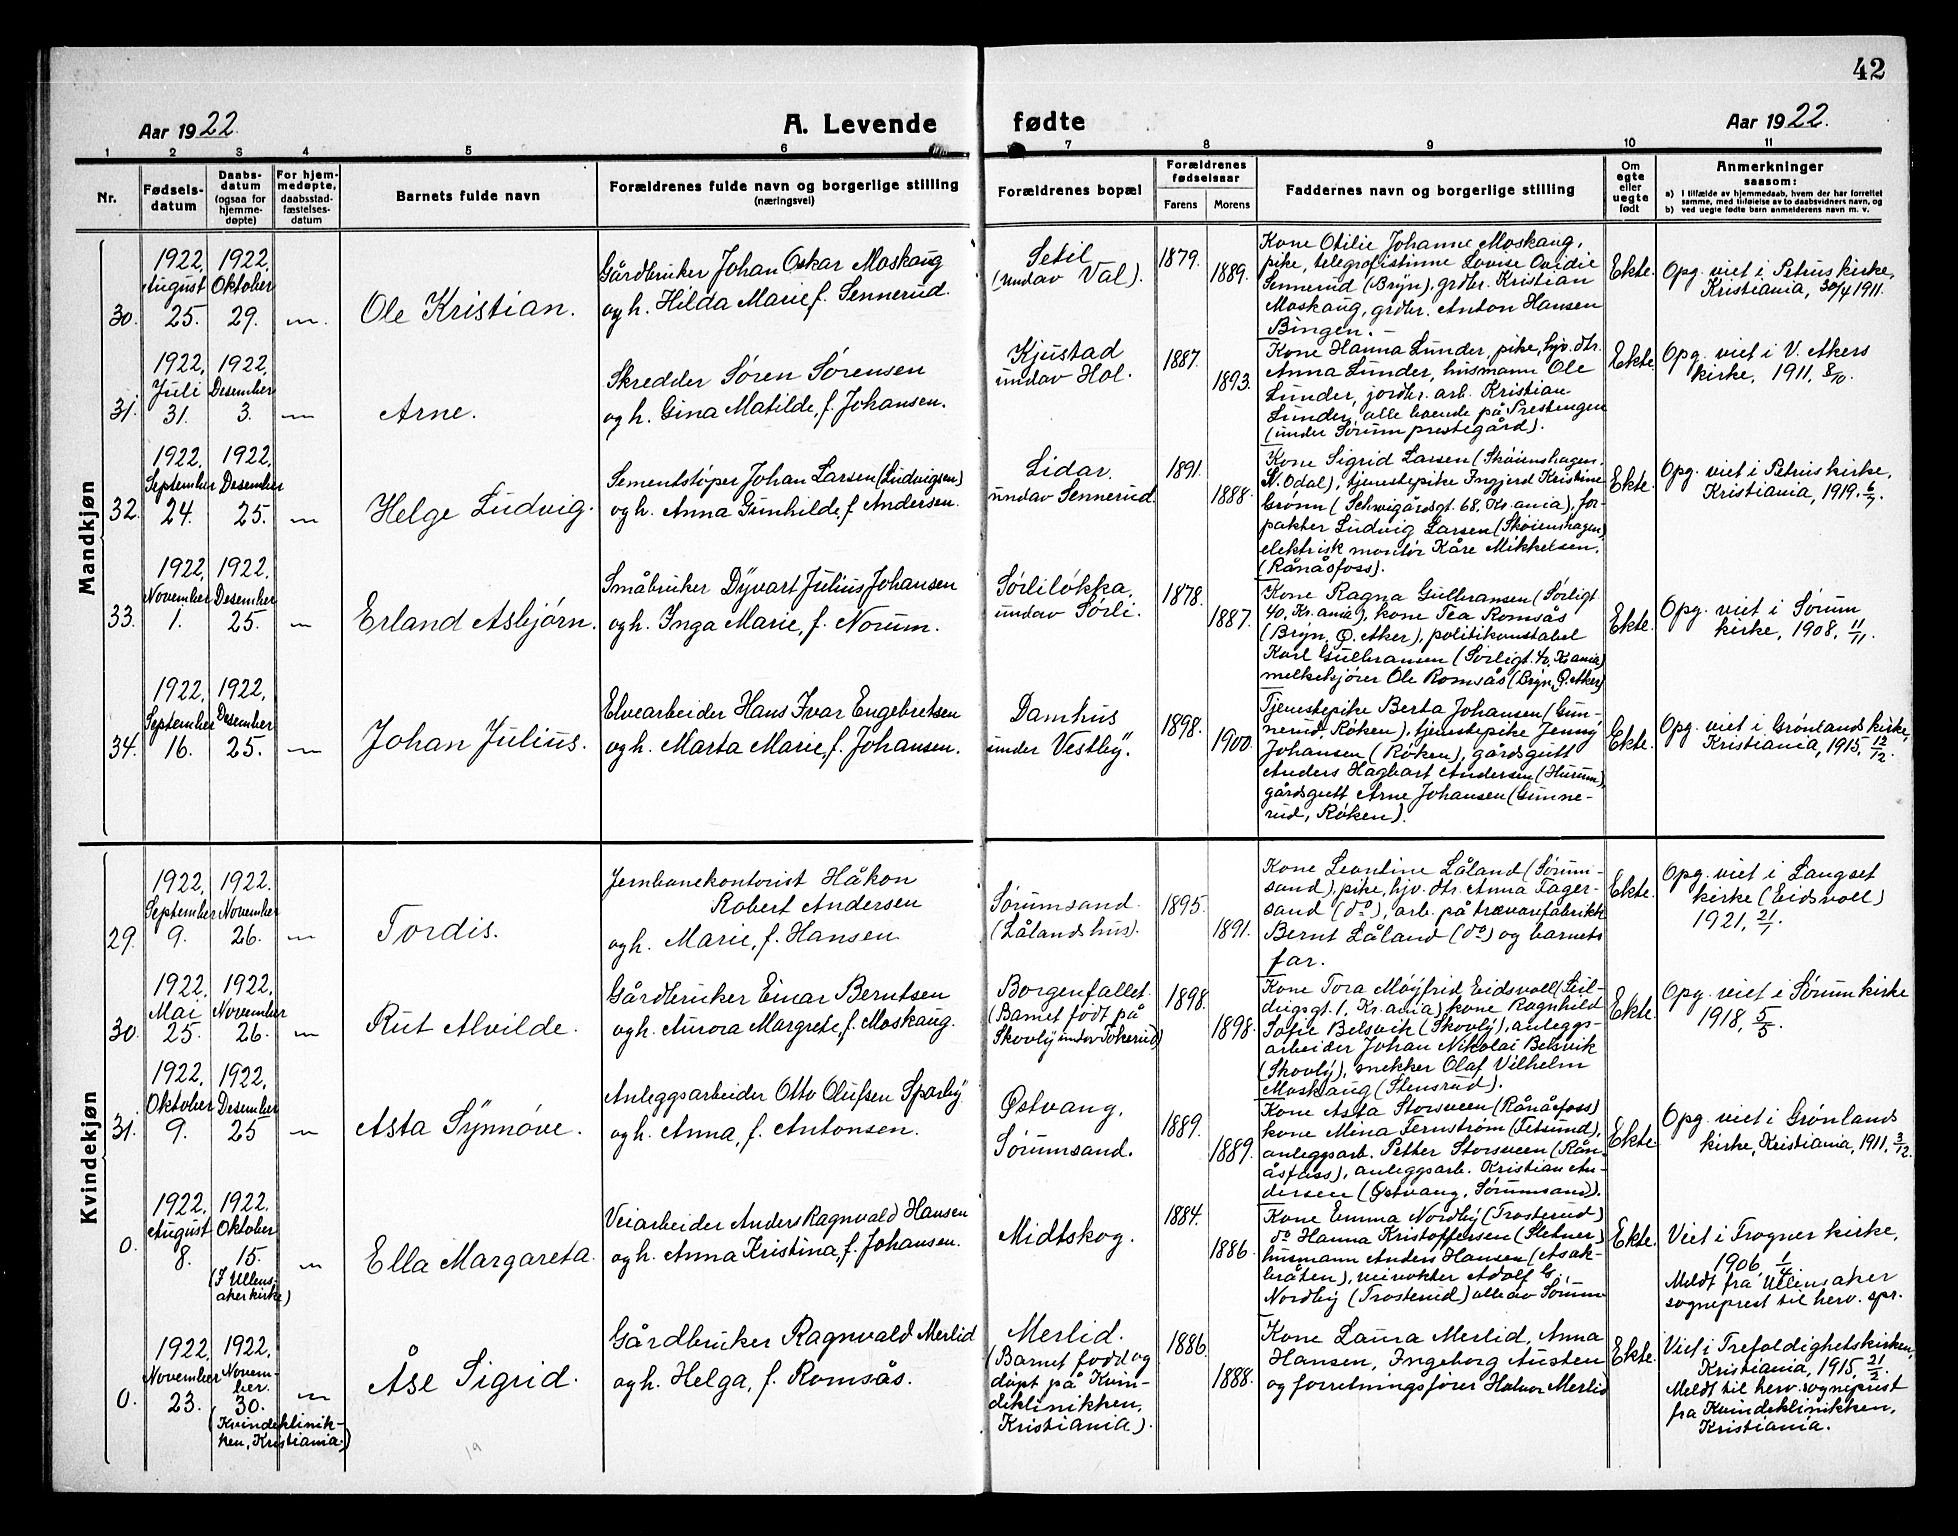 42
Aar 1922.
A. Levende
fødte
Aar 1922.
1 2 3 4 5 6 7 8 9 10 11
Nr.
Fødsels-
datum
Daabs-
datum
(ogsaa for
hjemme-
døpte)
For hjem-
medøpte,
daabsstad-
fæstelses-
datum
Barnets fulde navn
Forældrenes fulde navn og borgerlige stilling
(næringsvei)
Forældrenes bopæl
Forældrenes
fødselsaar
Farens Morens
Faddernes navn og borgerlige stilling
Om
egte
eller
uegte
født
Anmerkninger
saasom:
a) I tilfælde av hjemmedaab, hvem der har forrettet
samme, med tilføielse av to daabsvidners navn, og
b) ved uegte fødte barn anmelderens navn m. v.
Mandkjøn
30.
1922,
August
25.
1922,
Oktober
29.
Ole Kristian.
Gårdbruker Johan Oskar Moskaug
og h. Hilda Marie, f. Sennerud.
Setil
(undav Val).
1879.
1889.
Kone Otilie Johanne Moskaug,
pike, telegrafistinne Lovise Ovidie
Sennerud (Bryn), grdbr. Kristian
Moskaug, grdbr. Anton Hansen
Bingen.
Ekte.
Opg. viet i Petrus kirke,
Kristiania, 30/4 1911.
31.
1922,
Juli
31.
1922,
Desember
3.
Arne.
Skredder Søren Sørensen
og h. Gina Matilde, f. Johansen.
Kjustad
undav Hol.
1887.
1893.
Kone Hanna Lunder, pike, hjv. dtr.
Anna Lunder, husmann Ole
Lunder, jordbr. arb. Kristian
Lunder, alle boende på Prestengen
(under Sørum prestegård).
Ekte.
Opg. viet i V. Akers
kirke, 1911, 8/10.
32.
1922,
September
24.
1922,
Desember
25.
Helge Ludvig.
Sementstøper Johan Larsen (Ludvigsen)
og h. Anna Gunhilde, f. Andersen.
Lidar.
undav Sennerud.
1891.
1888.
Kone Sigrid Larsen (Skøienshagen,
N. Odal), tjenestepike Ingjerd Kristine
Grønn (Schwigårdsgt. 68, Kr.ania), for-
pakter Ludvig Larsen (Skøienshagen),
elektrisk montør Kåre Mikkelsen,
(Rånåsfoss).
Ekte.
Opg. viet i Petrus kirke,
Kristiania, 1919. 6/7.
33.
1922,
November
1.
1922,
Desember
25.
Erland Asbjørn.
Småbruker Dyvart Julius Johansen
og h. Inga Marie, f. Norum.
Sørliløkka,
undav Sørli.
1878.
1887.
Kone Ragna Gulbransen (Sørligt.
40, Kr.ania), kone Tea Romsås
(Bryn, Ø. Aker), politikonstabel
Karl Gulbransen (Sørligt. 40, Kr.ania)
melkekjører Ole Romsås (Bryn, Ø. Aker)
Ekte.
Opg. viet i Sørum
kirke, 1908, 11/11.
34.
1922,
September
16.
1922,
Desember
25.
Johan Julius.
Elvearbeider Hans Ivar Engebretsen
og h. Marta Marie, f. Johansen.
Damhus
under Vestby.
1898.
1900.
Tjenestepike Berta Johansen (Gun-
nerud, Røken), tjenestepike Jenny
Johansen (Røken), gårdsgutt
Anders Hagbart Andersen (Hurum),
gårdsgutt Arne Johansen (Gunne-
rud, Røken).
Ekte.
Opg. viet i Grønlands kirke,
Kristiania, 1915, 12/12.
Kvindekjøn
29.
1922,
September
9.
1922.
November
26.
Tordis.
Jernbanekontorist Håkon
Robert Andersen
og h. Marie, f. Hansen
Sørumsand.
(Lålandshus).
1895.
1891.
Kone Leontine Låland (Sørum-
sand), pike, hjv. dtr. Anna Fager-
sand (do), arb. på trævarefabrikk
Bernt Låland (do) og barnets
far.
Ekte.
Opg. viet i Langset
kirke (Eidsvoll)
1921, 21/1.
30.
1922,
Mai
25.
1922,
November
26.
Rut Alvilde.
Gårdbruker Einar Berntsen
og h. Aurora Margrete, f. Moskaug.
Borgenfallet.
(Barnet født på
Skovly undav Tokerud)
1898.
1898.
Kone Tora Møyfrid Eidsvoll
1, Kr.ania) kone Ragnhild
Sofie Belsvik (Skovly), anleggs-
arbeider Johan Nikolai Belsvik
(Skovly), smekker Olaf Vilhelm
Moskaug (Stensrud).
Ekte.
Opg. viet i Sørum kirke
1918, 5/5.
31.
1922,
Oktober
9.
1922,
Desember
25
Asta Synnøve.
Anleggsarbeider Otto Olufsen Sparby
og h. Anna, f. Antonsen.
Østvang,
Sørumsand.
1889.
1889.
Kone Asta Storsveen (Rånåsfoss)
kone Mina Fernström (Fetsund),
anleggsarb. Petter Storsveen (Rån-
åsfoss), anleggsarb. Kristian An-
dersen (Østvang, Sørumsand).
Ekte.
Opg. viet i Grønlands
kirke, Kristiania, 1911, 3/12.
0.
1922,
August
8.
1922.
Oktober
15.
(I Ullens-
aker kirke)
Ella Margareta.
Veiarbeider Anders Ragnvald Hansen
og h. Anna Kristina, f. Johansen.
Midtskog.
1884.
1886.
Kone Emma Nordby (Trosterud)
do Hanna Kristoffersen (Sletner)
husmann Anders Hansen (Asak-
bråten), veivokter Adolf G.
Nordby (Trosterud) alle av Sørum
Ekte.
Viet i Trogner kirke,
1906, 1/4.
Meldt fra Ullensaker
sogneprest til herv. spr.
0.
1922,
November
23.
1922.
Novem-
ber.
30.
(Kvindeklinik-
ken, Kristiania.)
Åse Sigrid.
Gårdbruker Ragnvald Merlid
og h. Helga, f. Romsås.
Merlid.
(Barnet født og
døpt på Kvin-
deklinikken,
Kristiania).
1886.
1888.
Kone Laura Merlid, Anna
Hansen, Ingeborg Austen
og forretningsfører Halvor Merlid
Ekte.
Viet i Trefoldighetskirken,
Kristiania, 1915, 21/2.
Meldt til herv. sogneprest
fra Kvindeklinikken,
Kristiania.
19